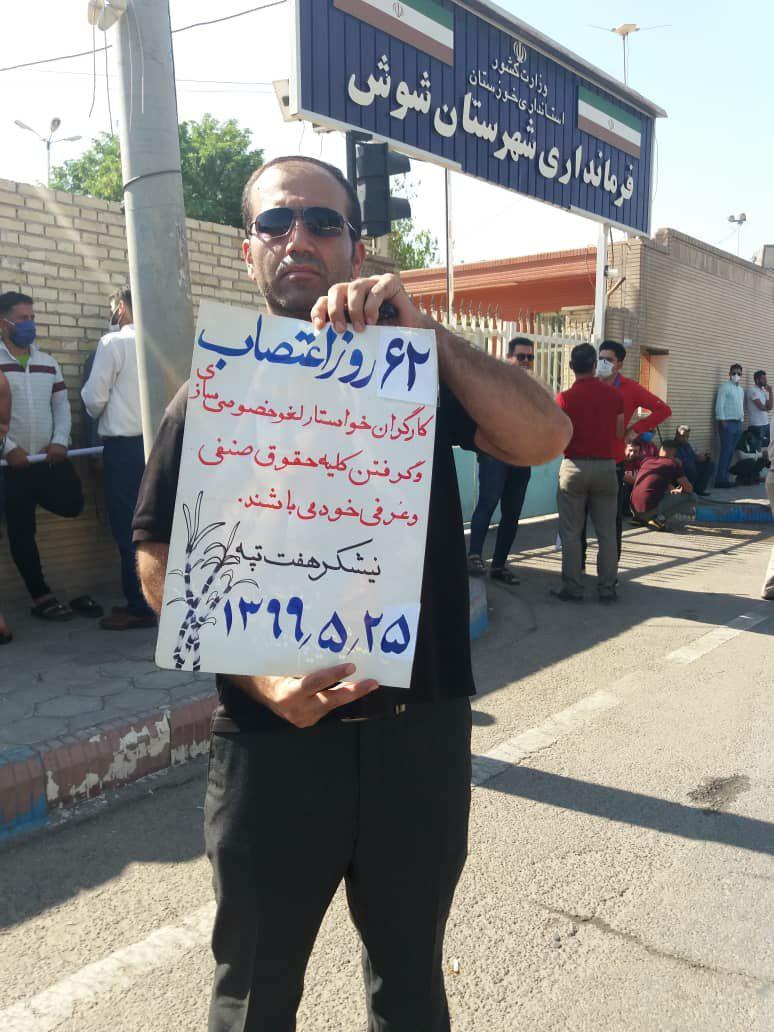 وزارت کشور
استانداری خوزستان
فرمانداری شهرستان شوش
۶۲ روز اعتصاب
کارگران خواستار لغو خصوصی سازی
و گرفتن کلیه حقوق صنفی
و عرفی خود می باشند.
نیشکر هفت تپه
۱۳۹۹٫۵٫۲۵